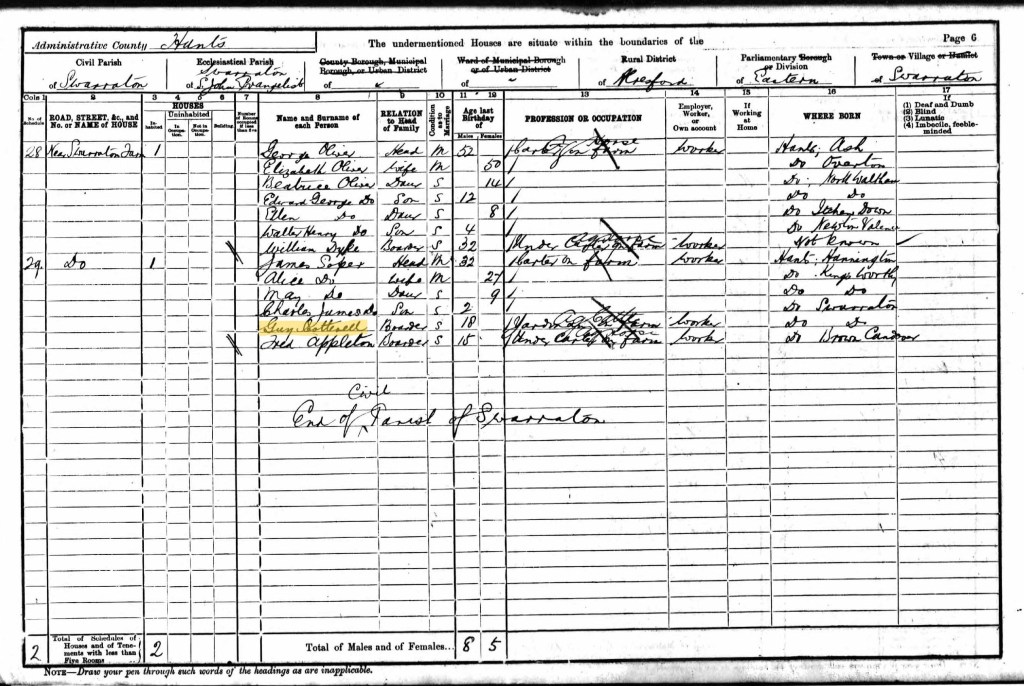 Administrative County Hants
The undermentioned Houses are situate within the boundaries of the
Page 6
Civil Parish of Swarraton
Ecclesiastical Parish of Swarraton St John Evangelist
County Borough, Municipal Borough, or Urban District of
Ward of Municipal Borough or of Urban District of
Rural District of Alresford
Parliamentary Borough or Division of Eastern
Town or Village or Hamlet of Swarraton
Cols 1 2 3 4 5 6 7 8 9 10 11 12 13 14 15 16 17
No. of Schedule
ROAD, STREET, &c., and No. or NAME of HOUSE
HOUSES
Inhabited
Uninhabited
In Occupation. Not in Occupation. Building.
Number of Rooms occupied if less than five
Name and Surname of each Person
RELATION to Head of Family
Condition as to Marriage
Age last Birthday of
Males Females
PROFESSION OR OCCUPATION
Employer, Worker, or Own account
If Working at Home
WHERE BORN
If (1) Deaf and Dumb (2) Blind (3) Lunatic (4) Imbecile, feeble-minded
28 Near Swarraton Farm 1 George Oliver Head M 52 Carter on farm Horse Worker Hants; Ash
Elizabeth Oliver Wife M 50 Do Overton
Beatrice Oliver Daur S 14 Do North Waltham
Edward George Do Son S 12 Do Do
Ellen Do Daur S 8 Do Itchen Down
Walter Henry Do Son S 4 Do Newton Valence
William Dyke Boarder S 32 Under Carter on Farm Worker Not Known
29. Do 1 James Soper Head M 32 Carter on farm Worker Hants; Hannington
Alice Do Wife M 27 Do Kings Worthy
May Do Daur S 9 Do Do
Charles James Do Son S 2 Do Swarraton
Guy Cotterell Boarder S 18 on Farm Worker Do Do
Fred Appleton Boarder S 15 Under Carter on Farm Worker Do Brown Candover
Civil
End of Parish of Swarraton
2 Total of Schedules of Houses and of Tenements with less than Five Rooms 2 Total of Males and of Females... 8 5
NOTE—Draw your pen through such words of the headings as are inapplicable.